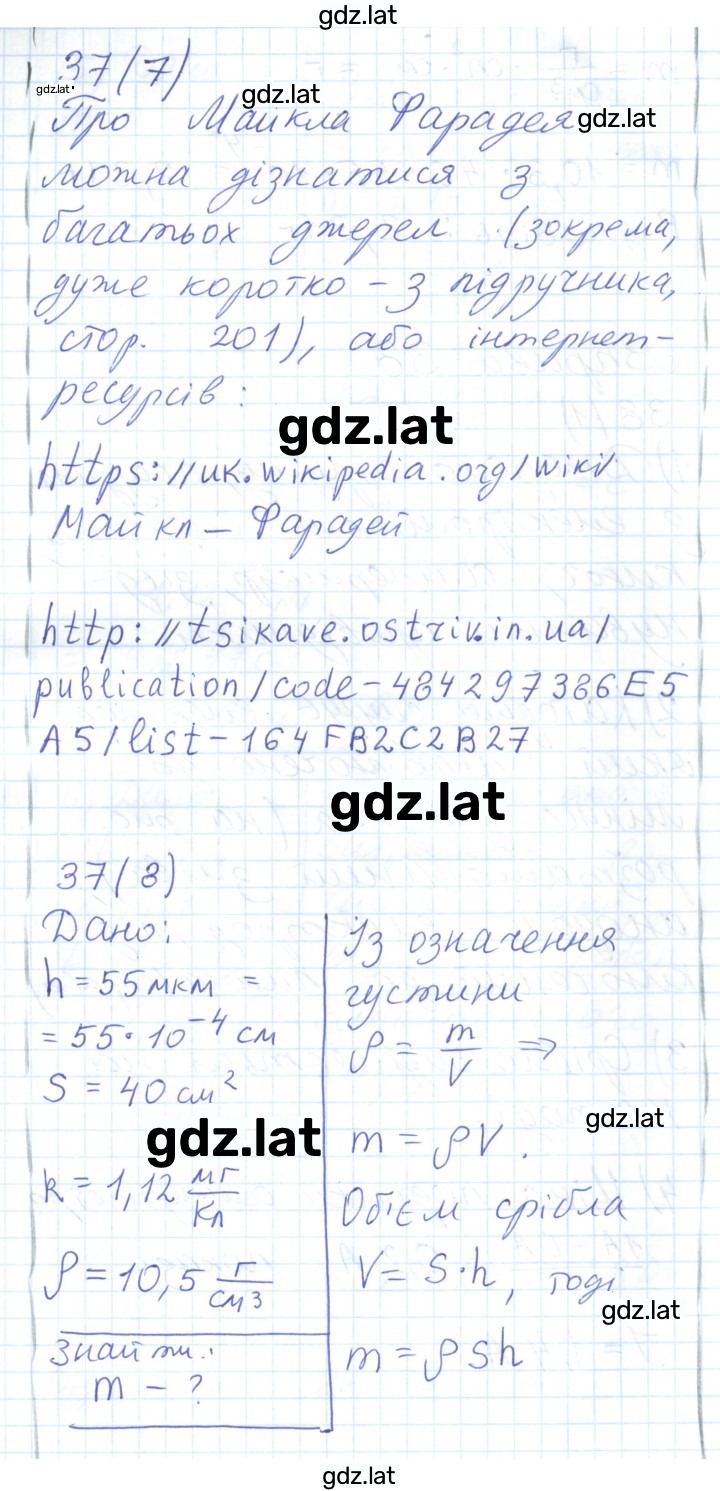 gdz.lat
37(7)
gdz.lat
gdz.lat
Про Майкла Фарадея
gdz.lat
можна дізнатися з
багатьох джерел (зокрема,
дуже коротко – з підручника,
стор. 201), або інтернет-
ресурсів:
gdz.lat
https://uk.wikipedia.org/wiki/
Майкл_Фарадей
http://tsikave.ostriv.in.ua/
publication/code-484297386E5
A5/list-164FB2C2B27
gdz.lat
37(8)
Дано:
h = 55 мкм =
= 55·10⁻⁴ см
S = 40 см²
gdz.lat
k = 1,12 мг/Кл
ρ = 10,5 г/см3
Знайти:
m – ?
Із означення
густини
ρ = m/V ⇒
gdz.lat
m = ρV.
Об'єм срібла
V = S·h, тоді
gdz.lat
m = ρSh
gdz.lat